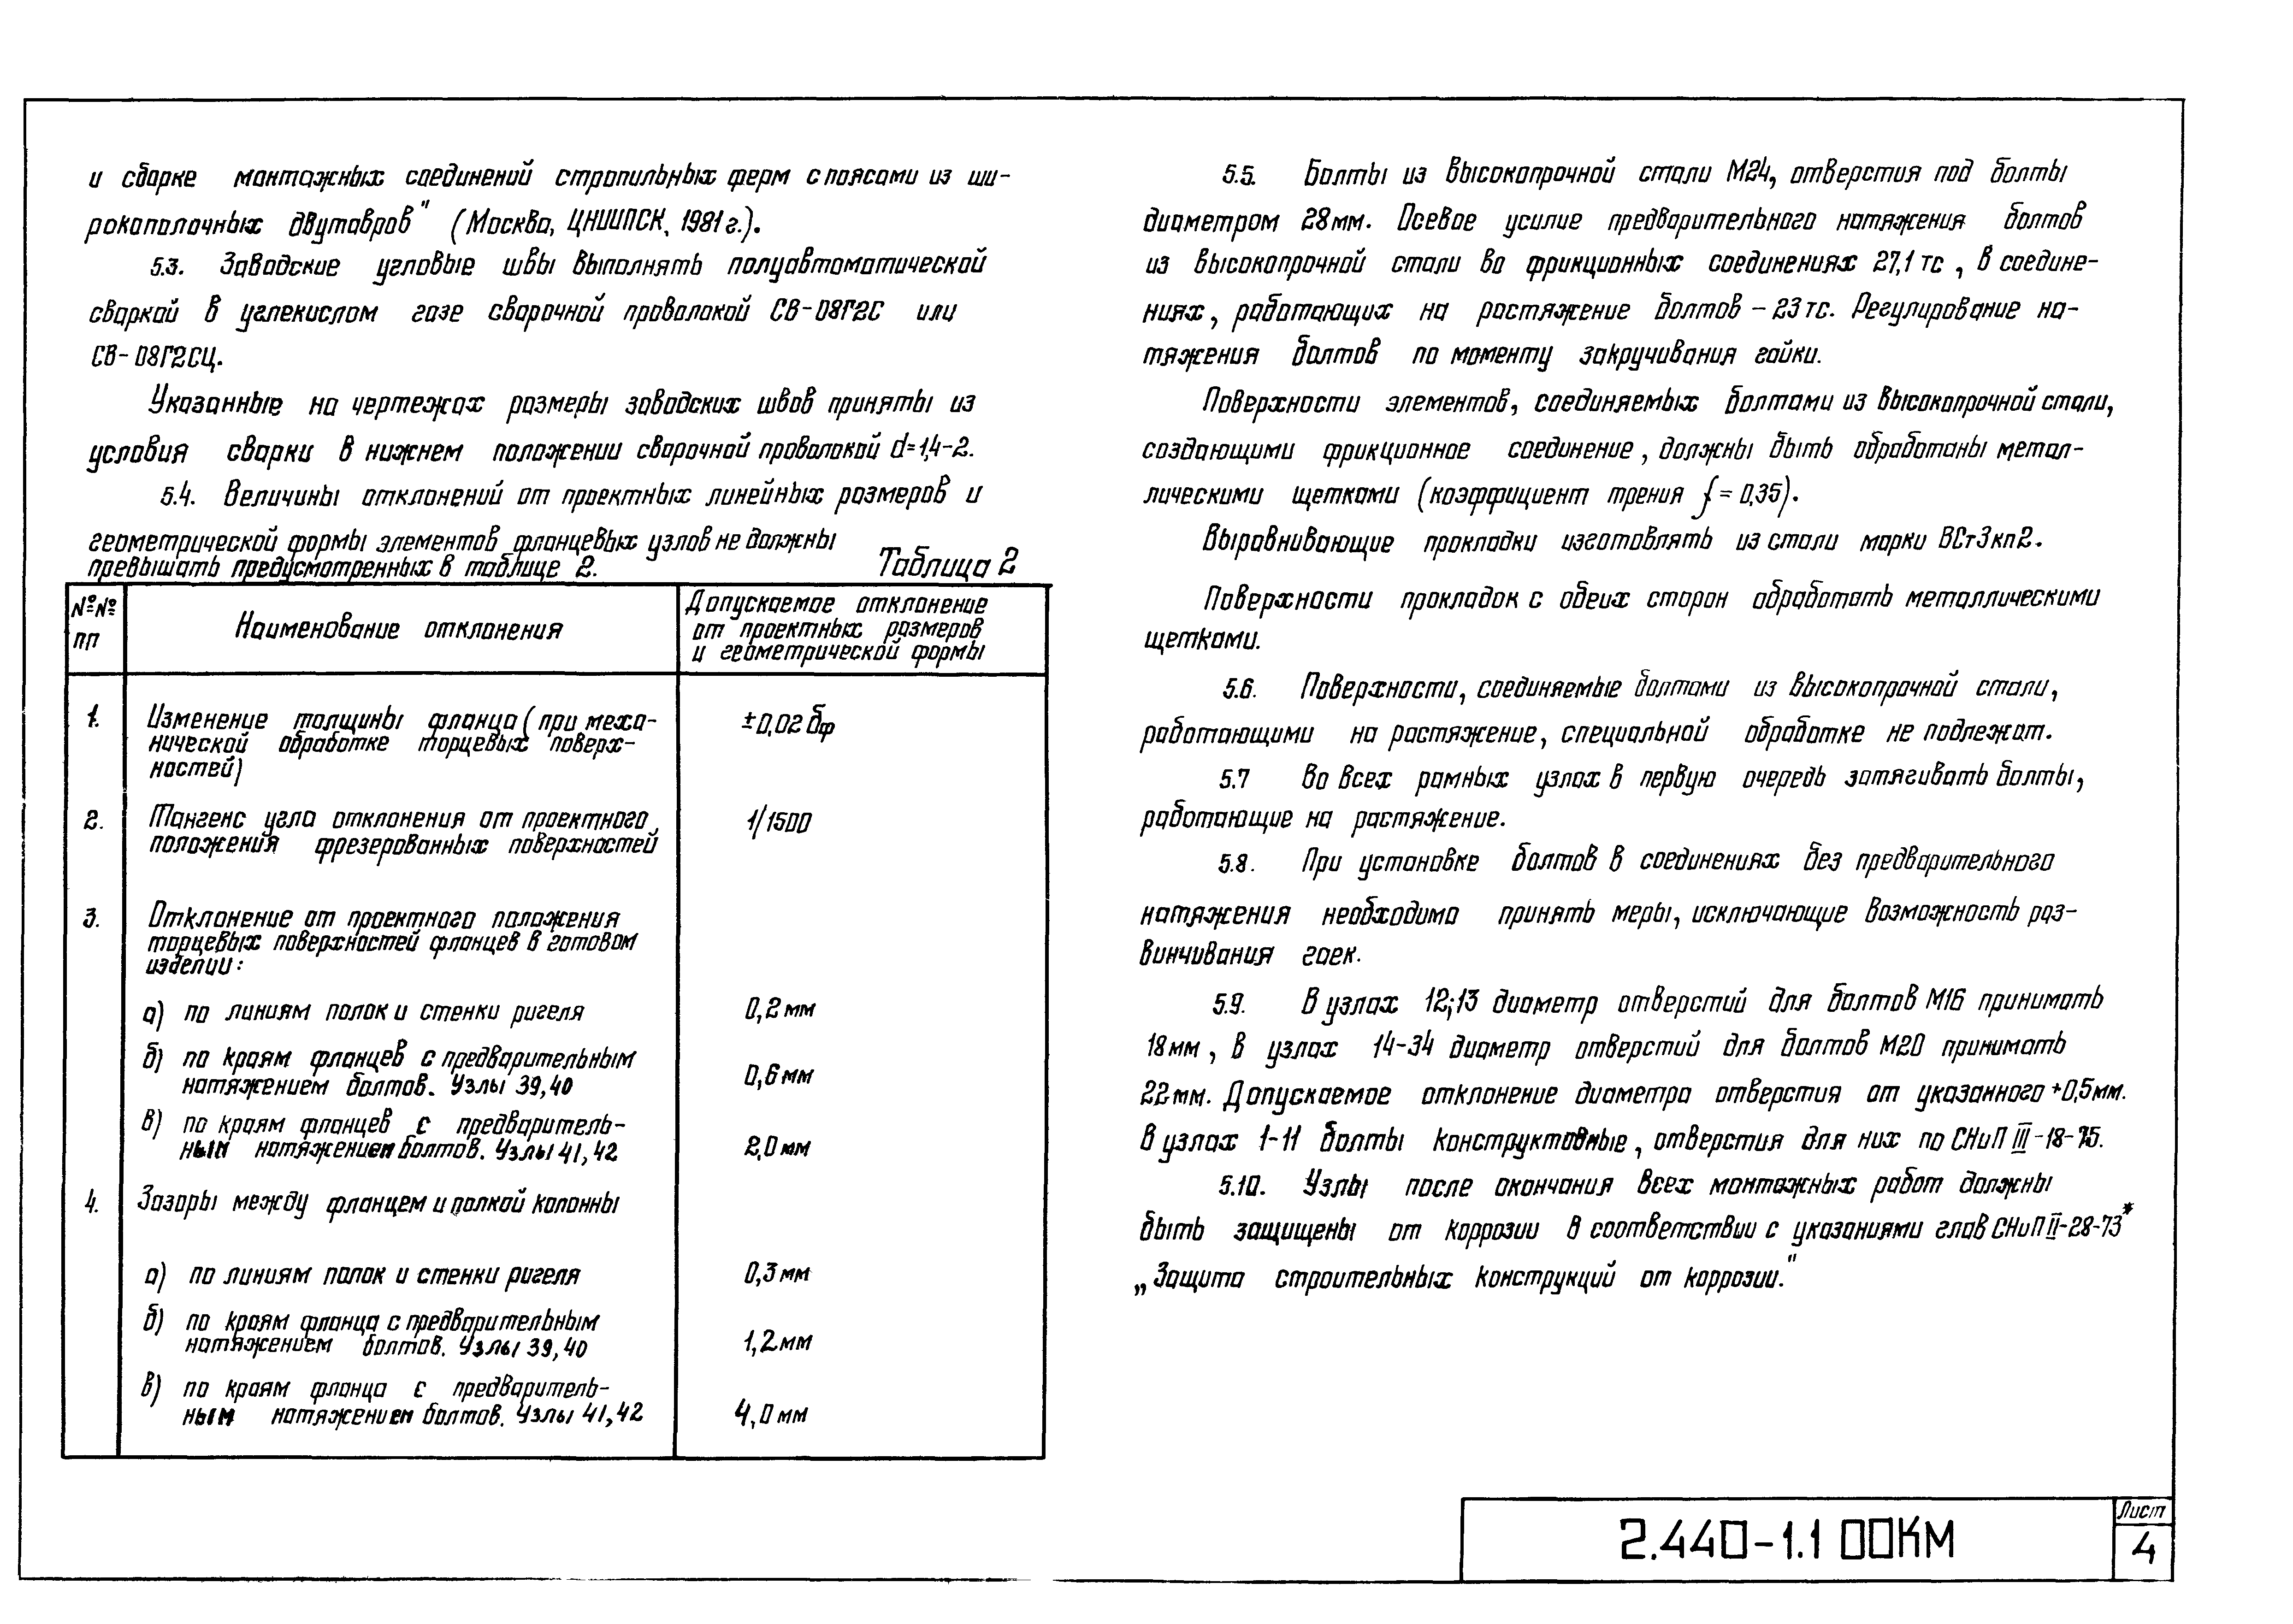 и сборке монтажных соединений стропильных ферм с поясами из ши-
рокополочных двутавров" (Москва, ЦНИИПСК, 1981 г.).
5.3. Заводские угловые швы выполнять полуавтоматической
сваркой в углекислом газе сварочной проволокой СВ-08Г2С или
СВ-08Г2СЦ.
Указанные на чертежах размеры заводских швов приняты из
условия сварки в нижнем положении сварочной проволокой d=1,4-2.
5.4. Величины отклонений от проектных линейных размеров и
геометрической формы элементов фланцевых узлов не должны
превышать предусмотренных в таблице 2.
Таблица 2
№№ пп
Наименование отклонения
Допускаемое отклонение
от проектных размеров
и геометрической формы
1. Изменение толщины фланца (при меха-
нической обработке торцевых поверх-
ностей)
±0,02 δф
2. Тангенс угла отклонения от проектного
положения фрезерованных поверхностей
1/1500
3. Отклонение от проектного положения
торцевых поверхностей фланцев в готовом
изделии:
а) по линиям полок и стенки ригеля 0,2 мм
б) по краям фланцев с предварительным
натяжением болтов. Узлы 39,40
0,6 мм
в) по краям фланцев с предваритель-
ным натяжением болтов. Узлы 41,42
2,0 мм
4. Зазоры между фланцем и полкой колонны
а) по линиям полок и стенки ригеля 0,3 мм
б) по краям фланца с предварительным
натяжением болтов. Узлы 39,40
1,2 мм
в) по краям фланца с предваритель-
ным натяжением болтов. Узлы 41,42
4,0 мм
5.5. Болты из высокопрочной стали М24, отверстия под болты
диаметром 28 мм. Осевое усилие предварительного натяжения болтов
из высокопрочной стали во фрикционных соединениях 27,1 тс, в соедине-
ниях, работающих на растяжение болтов – 23 тс. Регулирование на-
тяжения болтов по моменту закручивания гайки.
Поверхности элементов, соединяемых болтами из высокопрочной стали,
создающими фрикционное соединение, должны быть обработаны метал-
лическими щетками (коэффициент трения f = 0,35).
Выравнивающие прокладки изготовлять из стали марки ВСт3кп2.
Поверхности прокладок с обеих сторон обработать металлическими
щетками.
5.6. Поверхности, соединяемые болтами из высокопрочной стали,
работающими на растяжение, специальной обработке не подлежат.
5.7 Во всех рамных узлах в первую очередь затягивать болты,
работающие на растяжение.
5.8. При установке болтов в соединениях без предварительного
натяжения необходимо принять меры, исключающие возможность раз-
винчивания гаек.
5.9. В узлах 12;13 диаметр отверстий для болтов М16 принимать
18 мм, в узлах 14-34 диаметр отверстий для болтов М20 принимать
22 мм. Допускаемое отклонение диаметра отверстия от указанного +0,5 мм.
В узлах 1-11 болты конструктивные, отверстия для них по СНиП III-18-75.
5.10. Узлы после окончания всех монтажных работ должны
быть защищены от коррозии в соответствии с указаниями глав СНиП II-28-73*
„Защита строительных конструкций от коррозии."
2.440-1.1 00КМ
Лист
4